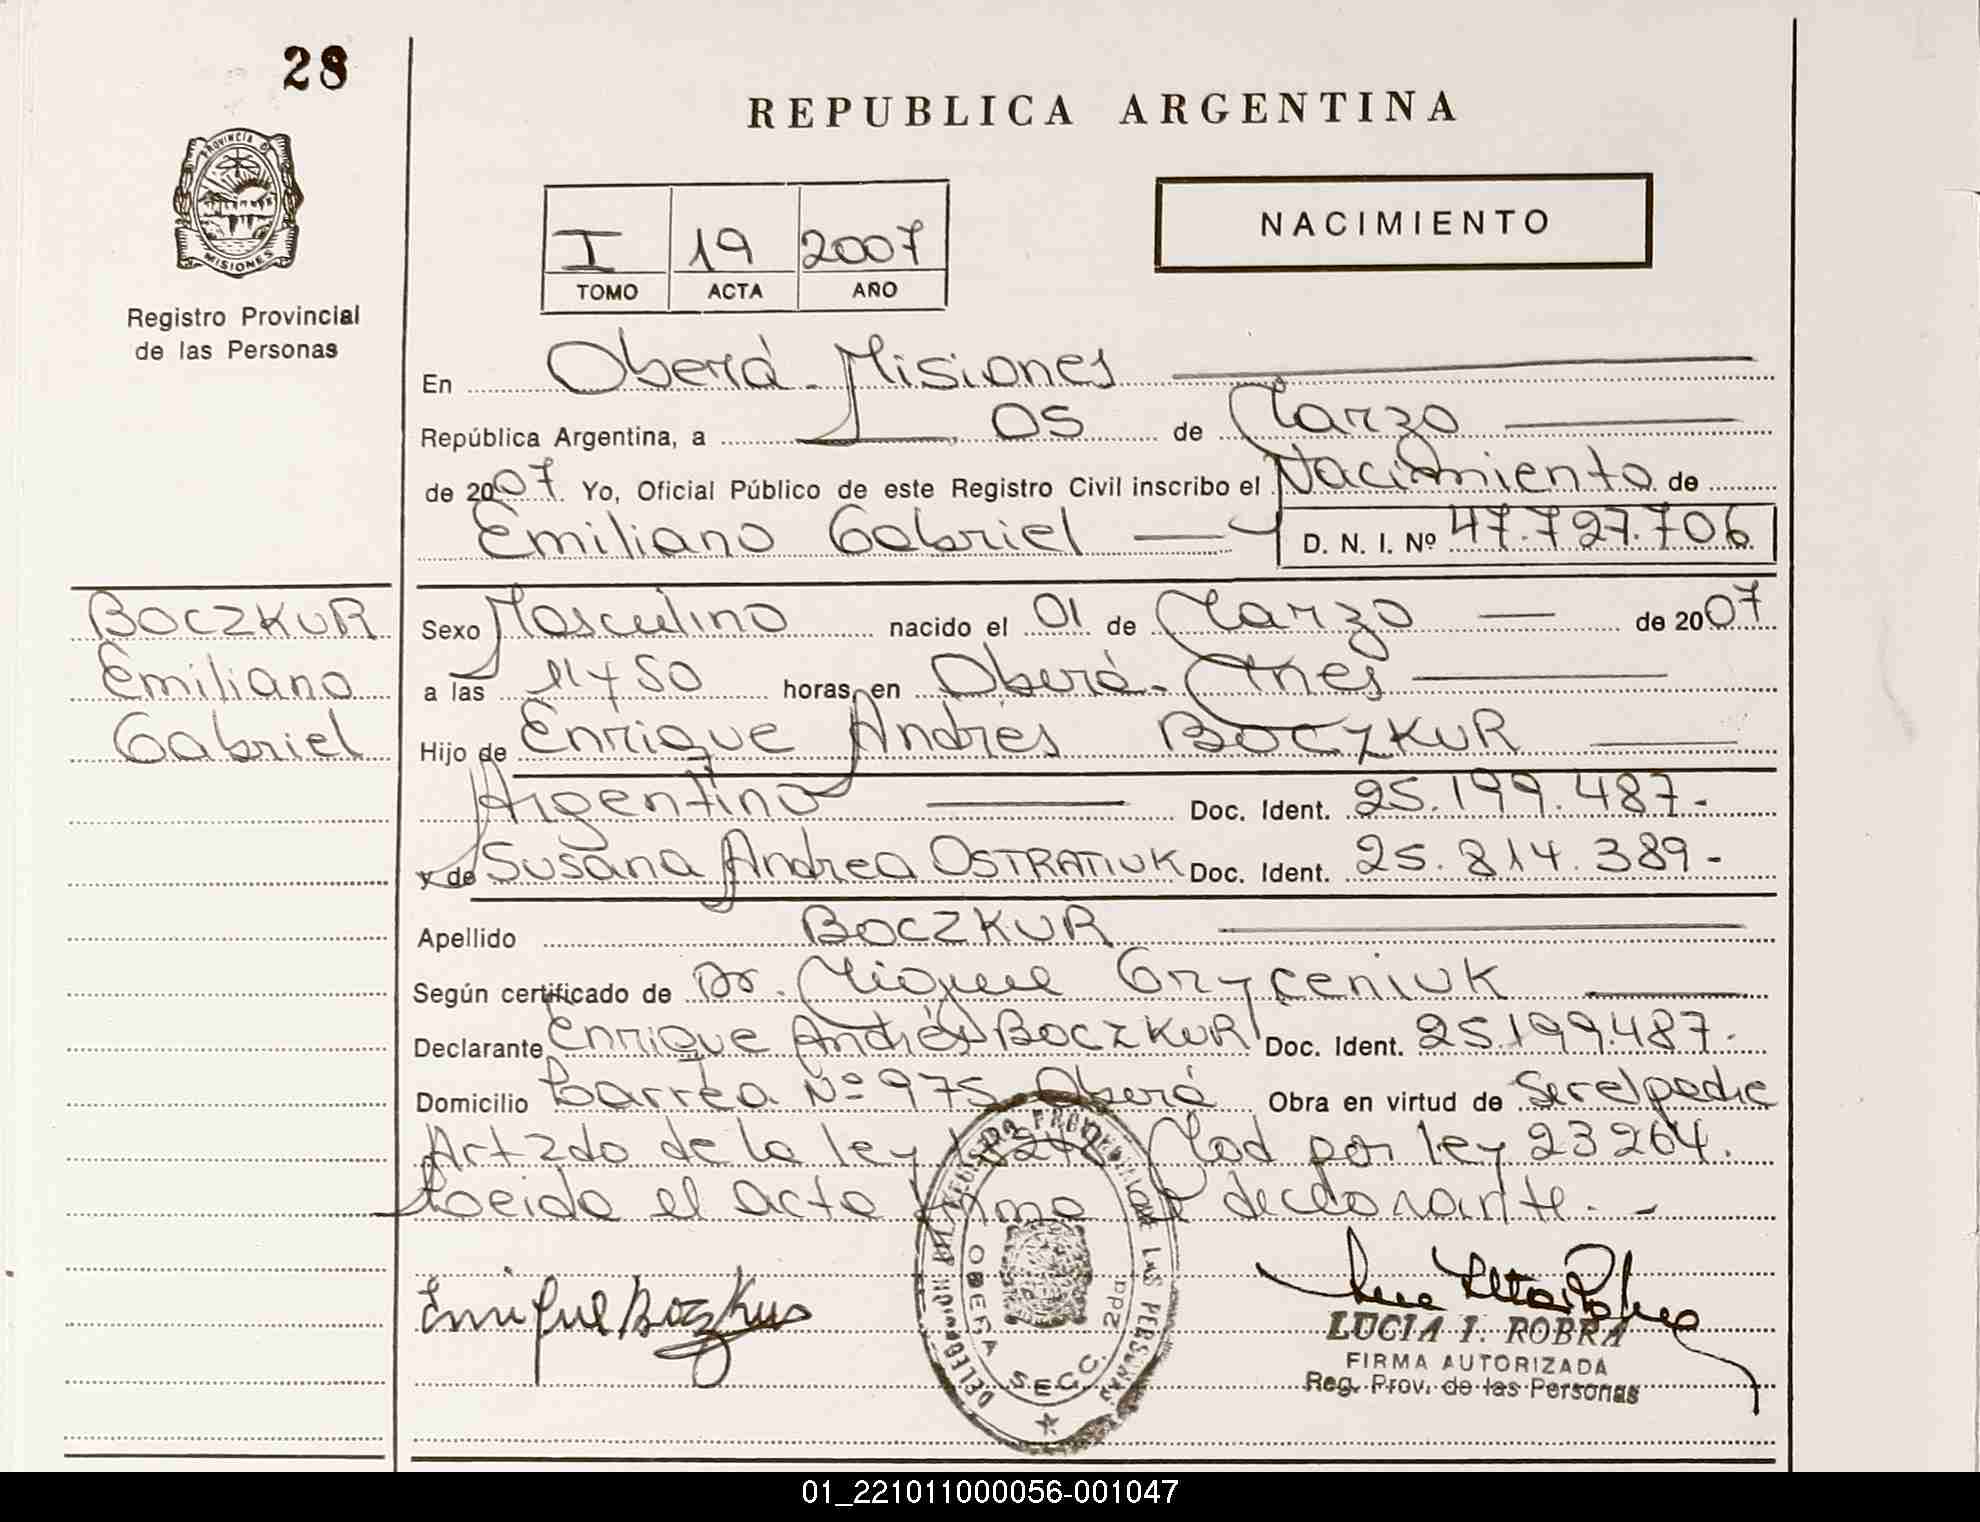 28
REPUBLICA ARGENTINA
PROVINCIA D
MISIONES
Registro Provincial
de las Personas
NACIMIENTO
I 19 2007
TOMO ACTA AÑO
En Oberá - Misiones
República Argentina, a 05 de Marzo
de 2007 Yo, Oficial Público de este Registro Civil inscribo el Nacimiento de
Emiliano Gabriel D. N. I. Nº 47.727.706
BOCZKUR
Emiliano
Gabriel
Sexo Masculino nacido el 01 de Marzo de 2007
a las 11 y 50 horas, en Oberá - Mnes
Hijo de Enrique Andrés BOCZKUR
Argentino Doc. Ident. 25.199.487.-
y de Susana Andrea OSTRATIUK Doc. Ident. 25.814.389-
Apellido BOCZKUR
Según certificado de Dr. Miguel Gryceniuk
Declarante Enrique Andrés BOCZKUR Doc. Ident. 25.199.487.-
Domicilio Larrea Nº 975 Oberá Obra en virtud de Ser el padre
Art 2do de la ley Mod por ley 23264.
Leida el acta firma el declarante. -
Enrique Boczkur
DELEGACION DEL REGISTRO PROVINCIAL DE LAS PERSONAS
OBERA SECC. 2da
LUCIA I. ROBRA
FIRMA AUTORIZADA
Reg. Prov. de las Personas
01_221011000056-001047